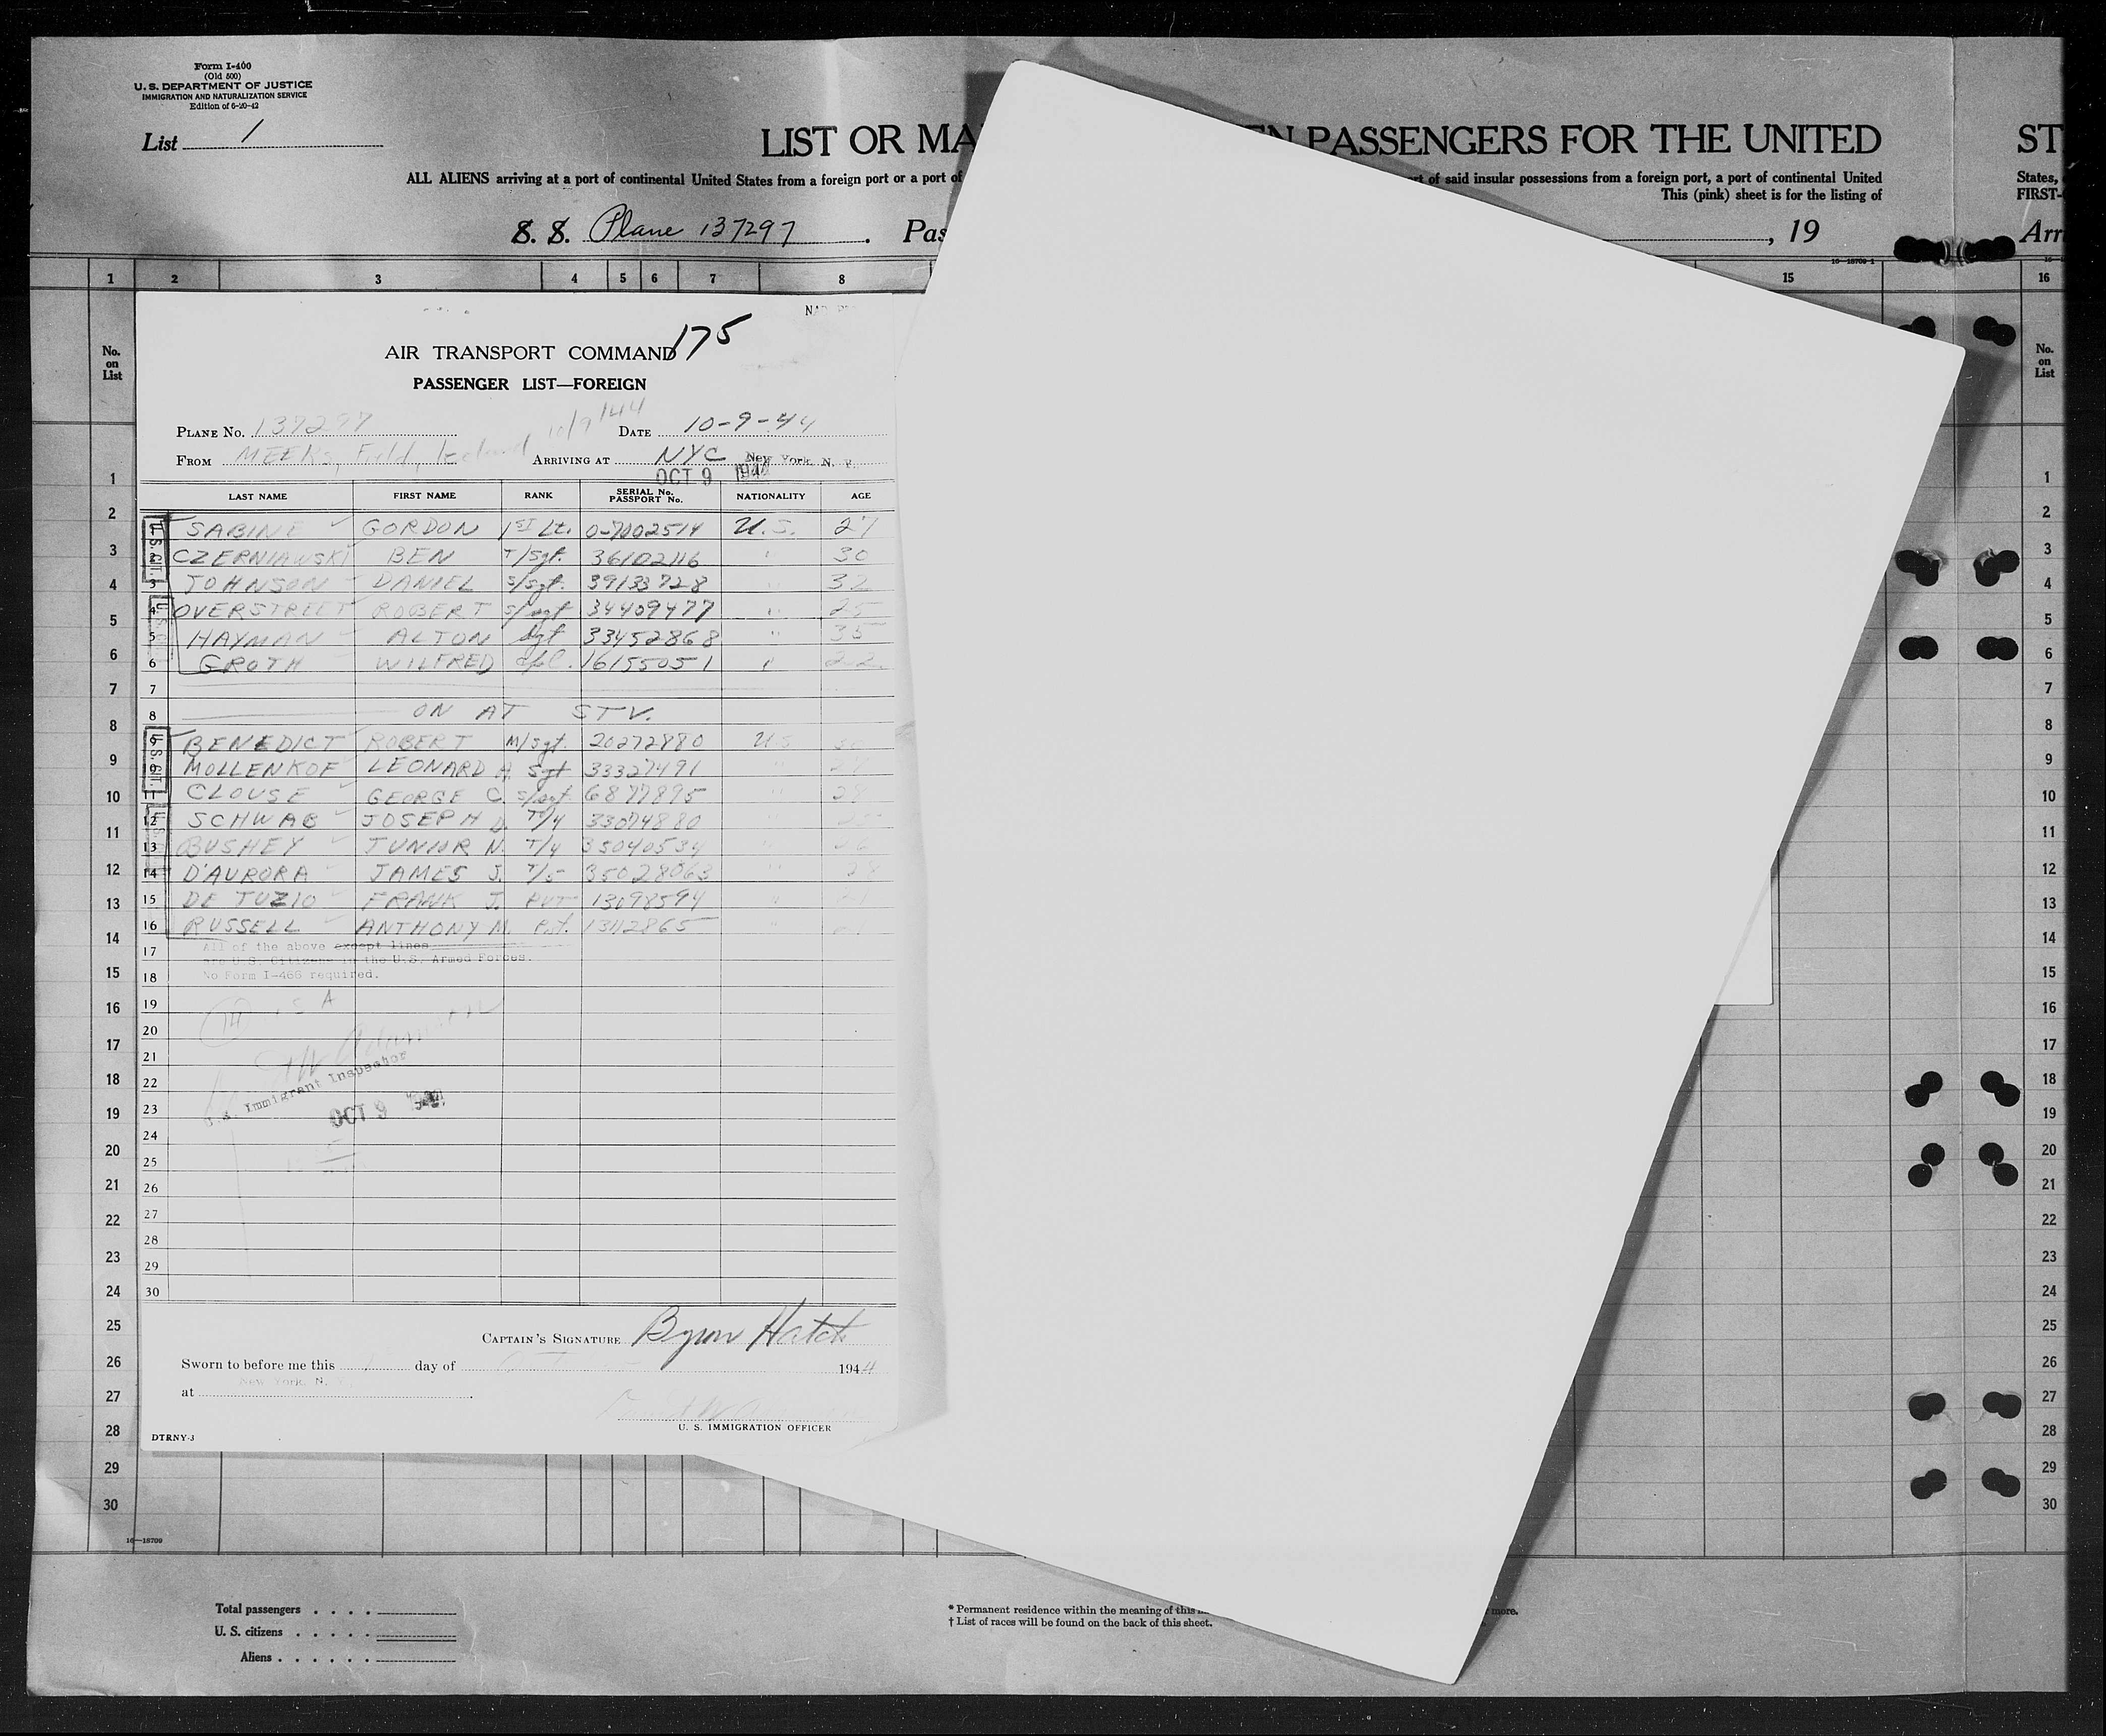 Form I-400
(Old 500)
U. S. DEPARTMENT OF JUSTICE
IMMIGRATION AND NATURALIZATION SERVICE
Edition of 6-20-42
List 1
LIST OR MA EN PASSENGERS FOR THE UNITED ST
ALL ALIENS arriving at a port of continental United States from a foreign port or a port of of said insular possessions from a foreign port, a port of continental United States,
This (pink) sheet is for the listing of FIRST-
S. S. Plane 137297 . Pas , 19 Arri
16—18709-1
1 2 3 4 5 6 7 8 15 16
No. on List
No. on List
175
AIR TRANSPORT COMMAND
PASSENGER LIST—FOREIGN
10/9/44
PLANE No. 137297 DATE 10-9-44
FROM MEEKS, Field, Iceland ARRIVING AT NYC New York, N. Y.
OCT 9 1944
LAST NAME FIRST NAME RANK SERIAL No. PASSPORT No. NATIONALITY AGE
1 SABINE GORDON 1ST Lt. U.S. 27
2 CZERNIAWSKI BEN T/Sgt. 36102116 " 30
3 JOHNSON DANIEL S/Sgt. 39133728 " 32
4 OVERSTREET ROBERT S/Sgt 34409477 " 25
5 HAYMAN ALTON Sgt 33452868 " 35
6 GROTH WILFRED Cpl. 16155051 " 22
7
8 ON AT STV.
9 BENEDICT ROBERT M/Sgt. 20272880 U.S
10 MOLLENKOF LEONARD A. Sgt 33327491 "
11 CLOUSE GEORGE C. S/Sgt 6877895 "
12 SCHWAB JOSEPH D. T/4 33074880 "
13 BUSHEY JUNIOR N. T/4 35040534 "
14 D'AURORA JAMES J. T/5 35028063 " 28
15 DE TUZIO FRANK J. PVT 13098594 "
16 RUSSELL ANTHONY M. Pvt. 13112865 "
U.S. CIT.
U.S. CIT.
17 All of the above except lines
are U.S. Citizens in the U.S. Armed Forces.
18 No Form I-466 required.
19
20
21
22 U.S. Immigrant Inspector
23 OCT 9 1944
24
25
26
27
28
29
30
CAPTAIN'S SIGNATURE Byron Hatch
Sworn to before me this day of 1944
New York, N.
at
U. S. IMMIGRATION OFFICER
DTRNY-3
1 1
2 2
3 3
4 4
5 5
6 6
7 7
8 8
9 9
10 10
11 11
12 12
13 13
14 14
15 15
16 16
17 17
18 18
19 19
20 20
21 21
22 22
23 23
24 24
25 25
26 26
27 27
28 28
29 29
30 30
16—18709
Total passengers
U. S. citizens
Aliens
* Permanent residence within the meaning of this more.
† List of races will be found on the back of this sheet.